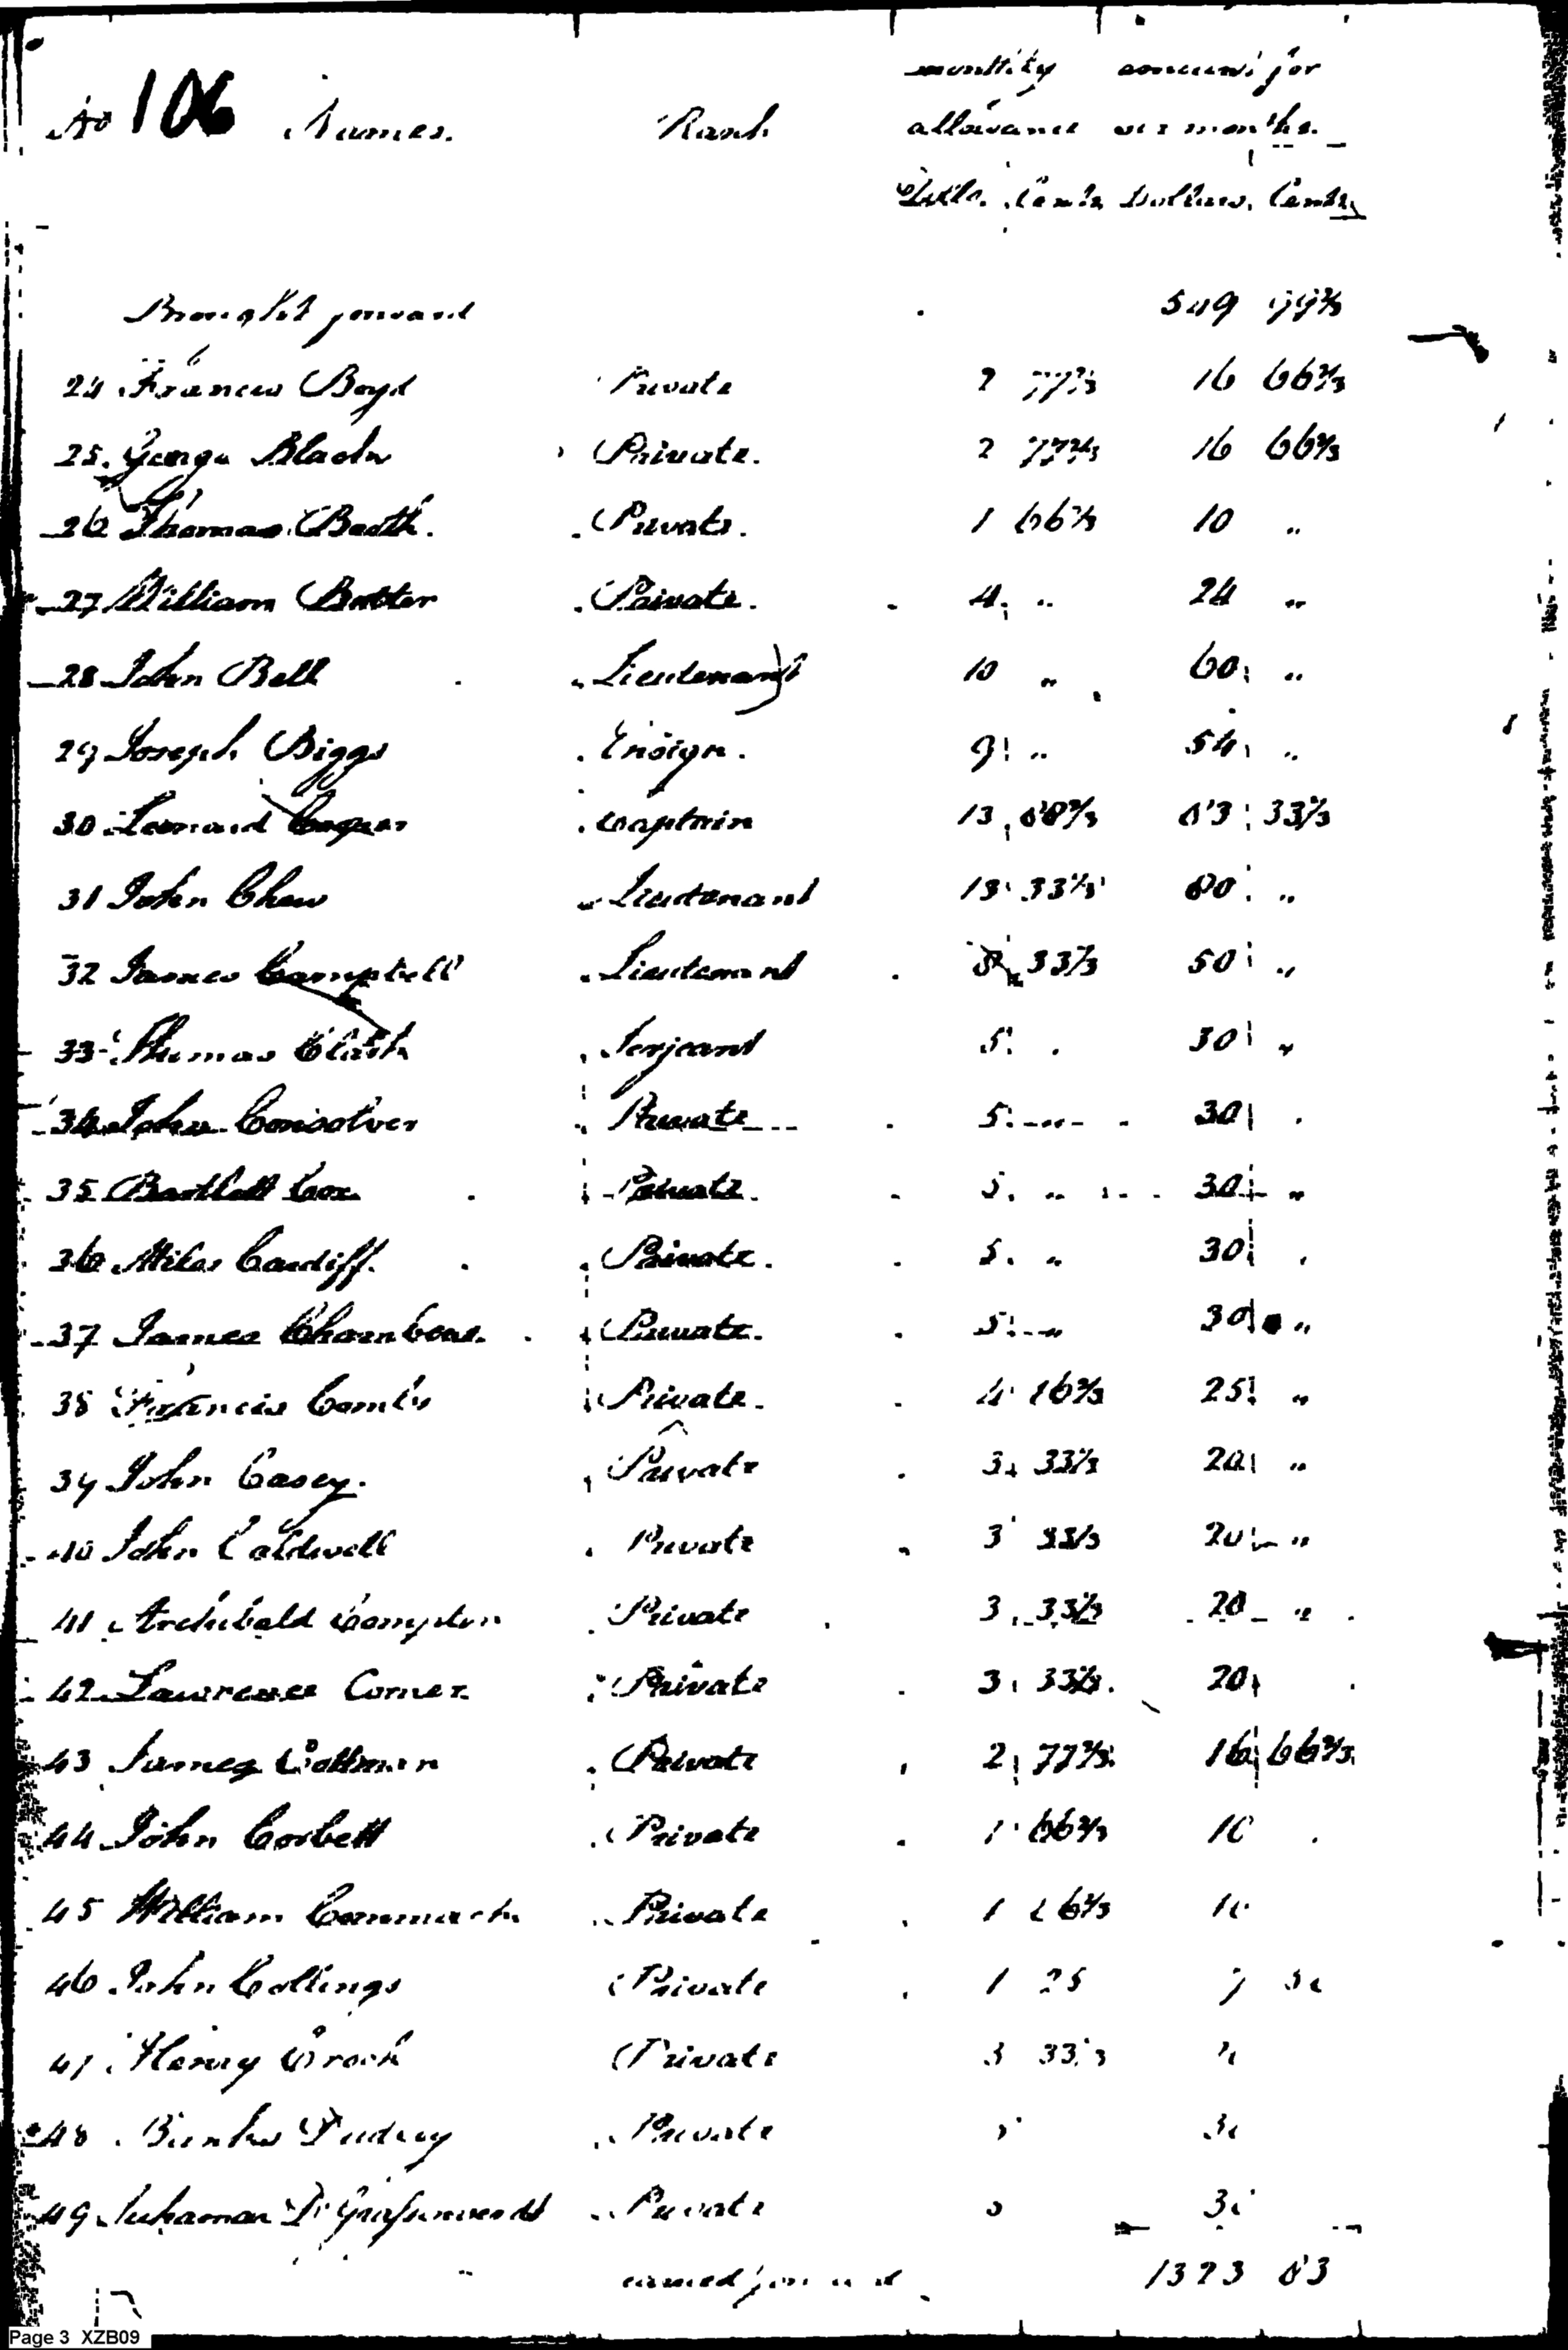 No 106 Names. Rank monthly allowance amount for six months.
Dolls. Cents Dollars. Cents
Brought forward 549
24 Francis Boyd Private 2 77 2/3 16 66 2/3
25. George Black Private. 2 77 2/3 16 66 2/3
26 Thomas Booth. Private. 1 66 2/3 10 "
27 William Private. 4. " 24 "
28 John Bell Lieutenant 10 " 60 "
29 Joseph Biggs Ensign. 9 " 54 "
30 Leonard Cooper Captain 13 88 2/3 83 33 1/3
31 John Chew Lieutenant 13 33 1/3 80 "
32 James Campbell Lieutenant 8 33 1/3 50 "
33 Thomas Clark Serjeant 5. 30 "
34 John Consolver Private 5. " 30
35 Bartlett Cox Private. 5. " 30 "
36 Miles Cardiff. Private. 5. " 30
37 James Chambers. Private. 5. " 30 "
38 Francis Combs Private. 4 16 2/3 25 "
39 John Casey. Private 3 33 1/3 20 "
40 John Caldwell Private 3 33 1/3 20 "
41 Archibald Compton Private 3. 33 1/3 20 "
42 Lawrence Corner Private 3 33 1/3. 20
43 James Private 2 77 2/3 16 66 2/3
44 John Corbett Private 1 66 2/3 10
45 William Cammack Private 1 66 2/3 10
46 John Collings Private 1 25 7 50
47 Henry Crook Private 3 33 1/3
48 Banks Dudley Private 30
49 De Graffenreidt Private 30
carried forward 1323 83
Page 3 XZB09